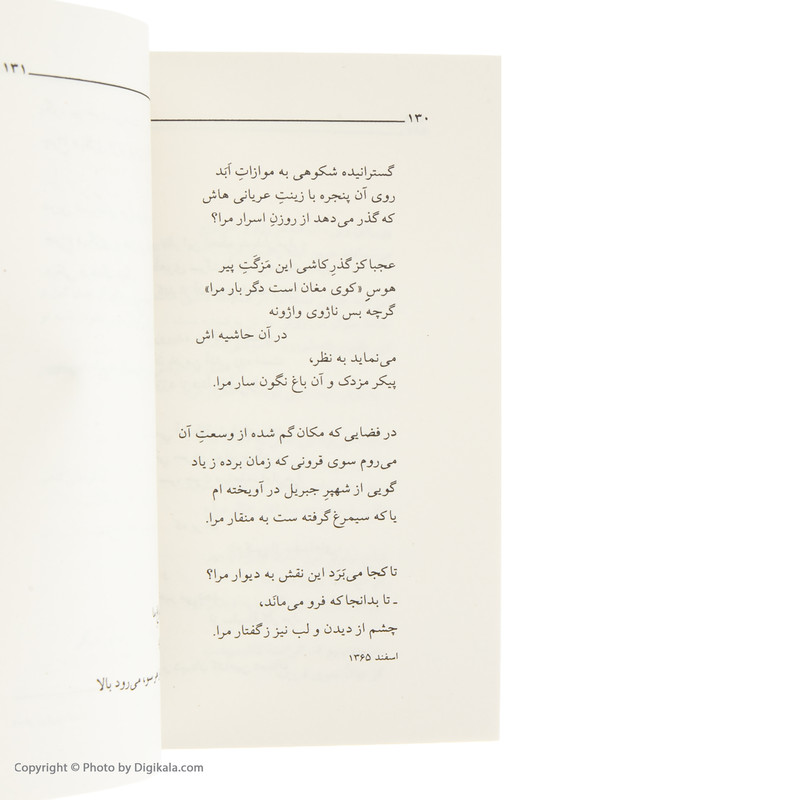 ۱۳۰
گسترانیده شکوهی به موازاتِ اَبَد
روی آن پنجره با زینتِ عریانی هاش
که گذر می‌دهد از روزنِ اسرار مرا؟
عجبا کز گذرِ کاشی این مَزگَتِ پیر
هوسِ «کوی مغان است دگر بار مرا»
گرچه بس ناژوی واژونه
در آن حاشیه اش
می‌نماید به نظر،
پیکر مزدک و آن باغ نگون سار مرا.
در فضایی که مکان گم شده از وسعتِ آن
می‌روم سوی قرونی که زمان برده ز یاد
گویی از شهپرِ جبریل در آویخته ام
یا که سیمرغ گرفته ست به منقار مرا.
تا کجا می‌بَرَد این نقش به دیوار مرا؟
ـ تا بدانجا که فرو می‌ماند،
چشم از دیدن و لب نیز ز گفتار مرا.
اسفند ۱۳۶۵
۱۳۱
می‌رود بالا
Copyright © Photo by Digikala.com